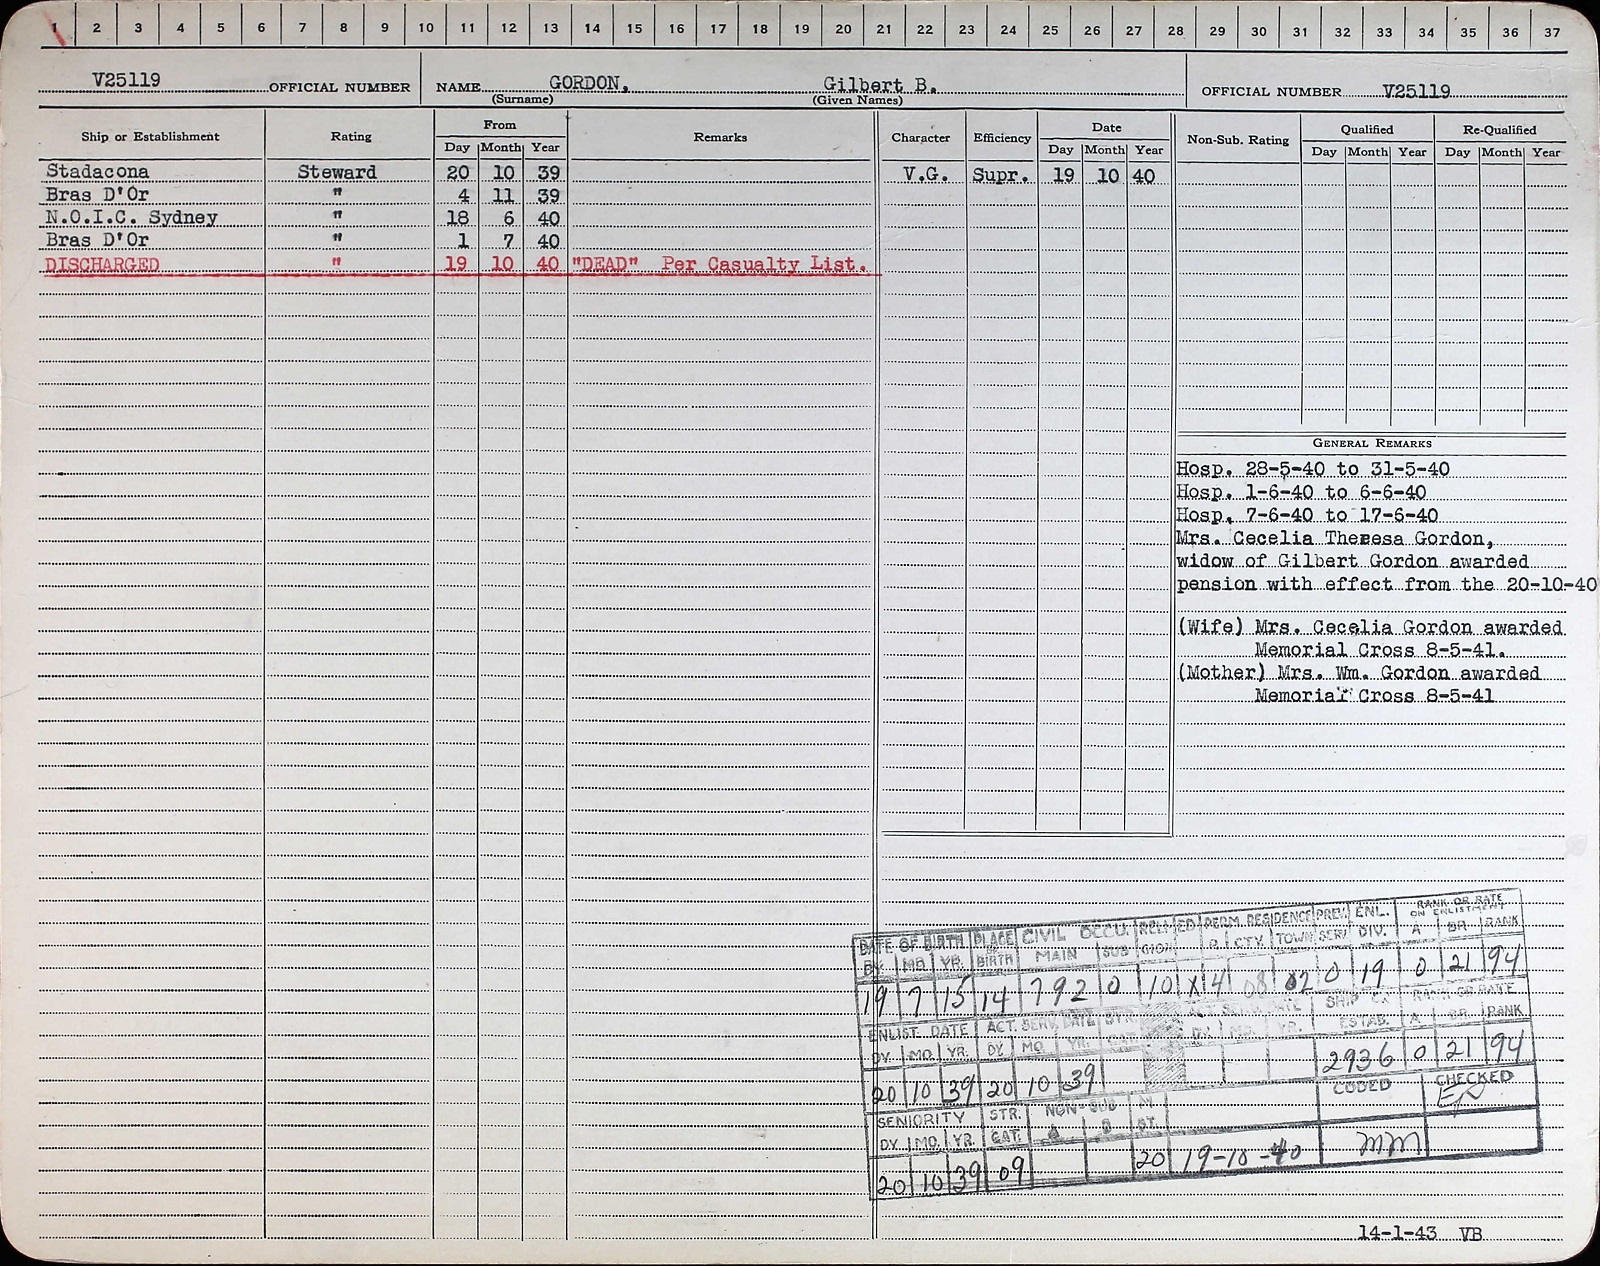 1 2 3 4 5 6 7 8 9 10 11 12 13 14 15 16 17 18 19 20 21 22 23 24 25 26 27 28 29 30 31 32 33 34 35 36 37
V25119 OFFICIAL NUMBER NAME GORDON, Gilbert B. OFFICIAL NUMBER V25119
(Surname) (Given Names)
Ship or Establishment Rating From Remarks Character Efficiency Date Non-Sub. Rating Qualified Re-Qualified
Day Month Year Day Month Year Day Month Year Day Month Year
Stadacona Steward 20 10 39 V.G. Supr. 19 10 40
Bras D'Or " 4 11 39
N.O.I.C. Sydney " 18 6 40
Bras D'Or " 1 7 40
DISCHARGED " 19 10 40 "DEAD" Per Casualty List.
GENERAL REMARKS
Hosp. 28-5-40 to 31-5-40
Hosp. 1-6-40 to 6-6-40
Hosp. 7-6-40 to 17-6-40
Mrs. Cecelia Theresa Gordon,
widow of Gilbert Gordon awarded
pension with effect from the 20-10-40
(Wife) Mrs. Cecelia Gordon awarded
Memorial Cross 8-5-41.
(Mother) Mrs. Wm. Gordon awarded
Memorial Cross 8-5-41
DATE OF BIRTH PLACE CIVIL OCCU. PERM. RESIDENCE PREV. ENL. RANK OR RATE
ON ENLISTMENT
DY. MO. YR. BIRTH MAIN SUB CTY. TOWN SERV. DIV. A BR. RANK
19 7 15 14 792 0 10 X 4 08 02 0 19 0 21 94
ENLIST. DATE ACT. SERV. DATE SHIP OR RANK OR RATE
DY. MO. YR. DY. MO. YR. ESTAB. A BR. RANK
20 10 39 20 10 39 2936 0 21 94
CODED CHECKED
SENIORITY STR. NON-SUB
DY. MO. YR. CAT. A B ST.
20 10 39 09 20 19-10-40 MM
14-1-43 VB